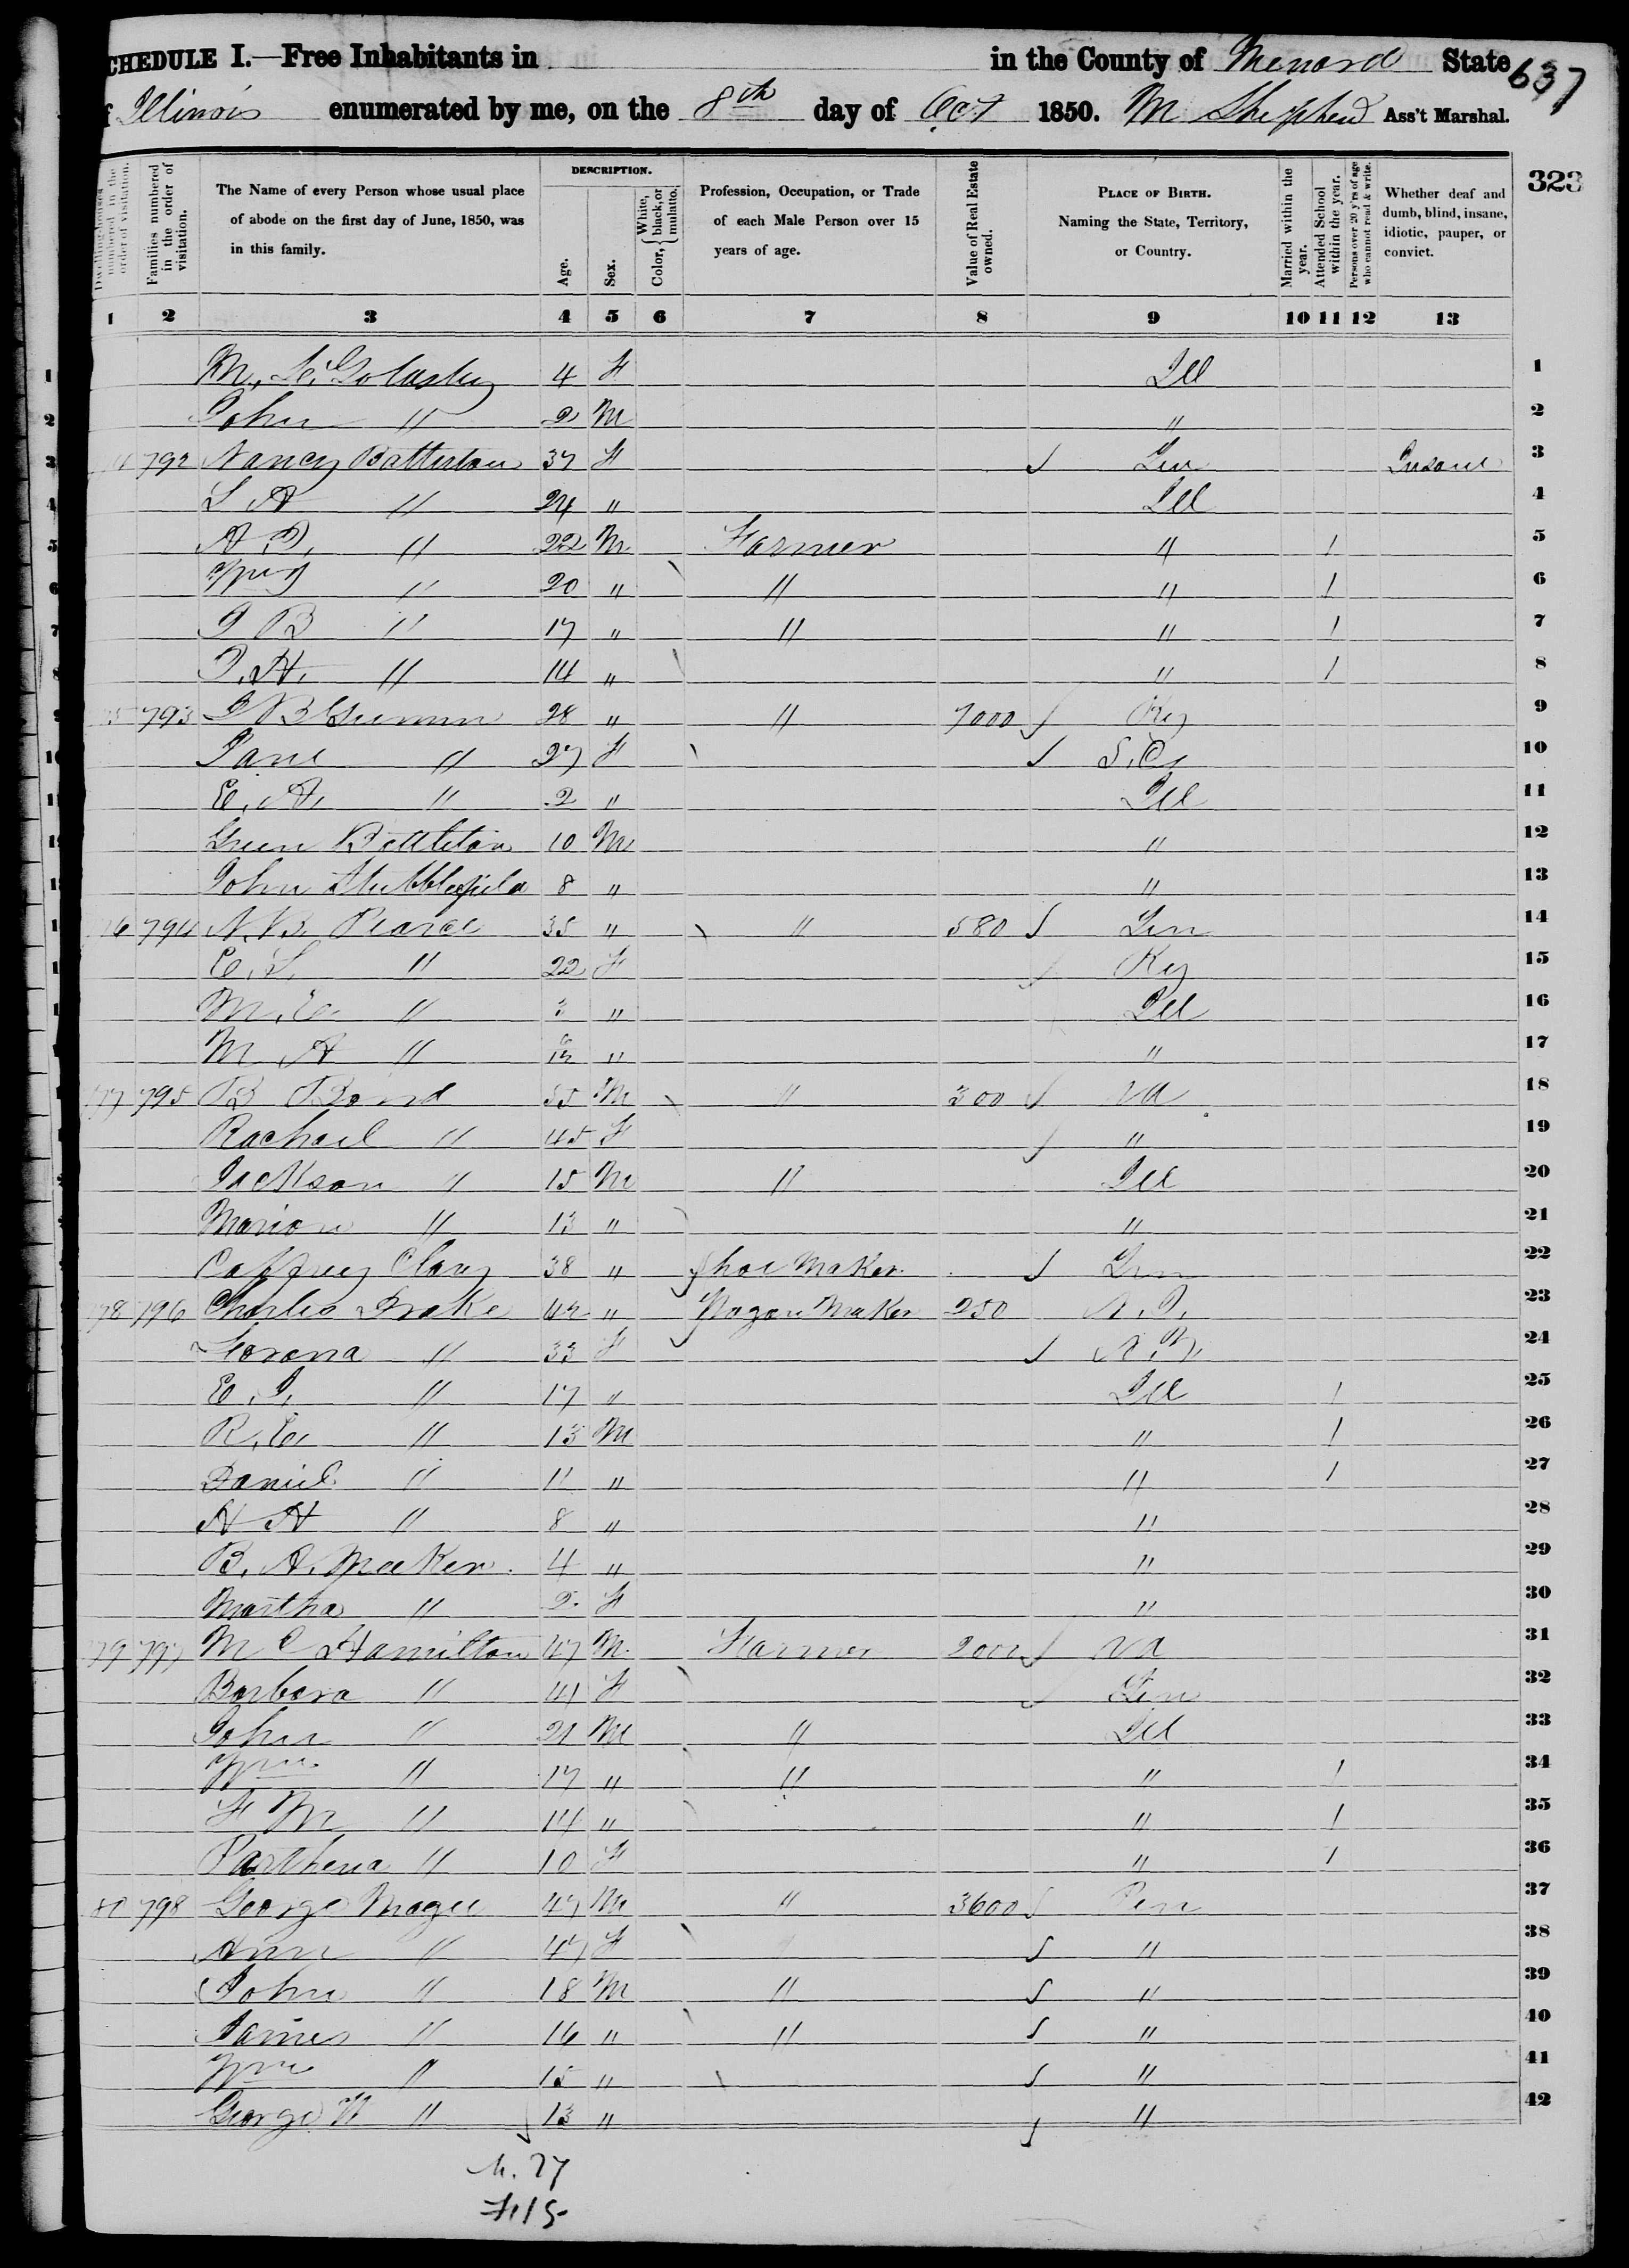 CHEDULE I.—Free Inhabitants in in the County of Menard State 637
f Illinois enumerated by me, on the 8th day of Oct 1850. M Shepherd Ass't Marshal.
323
Dwelling-houses numbered in the order of visitation.
Families numbered in the order of visitation.
The Name of every Person whose usual place of abode on the first day of June, 1850, was in this family.
DESCRIPTION.
Age.
Sex.
Color, { White, black, or mulatto.
Profession, Occupation, or Trade of each Male Person over 15 years of age.
Value of Real Estate owned.
PLACE OF BIRTH. Naming the State, Territory, or Country.
Married within the year.
Attended School within the year.
Persons over 20 y'rs of age who cannot read & write.
Whether deaf and dumb, blind, insane, idiotic, pauper, or convict.
1 2 3 4 5 6 7 8 9 10 11 12 13
1 M, 4 F Ill 1
2 John " 2 M " 2
3 792 Nancy Batterton 37 F Ten Insane 3
4 S A " 24 " Ill 4
5 A D, " 22 M Farmer " 1 5
6 Wm " 20 " " " 1 6
7 I B " 17 " " " 1 7
8 " 14 " " 1 8
9 793 I B Gumm 28 " " 7000 Ky 9
Jane " 27 F S.C. 10
E. A, " 2 " Ill 11
Green Battleton 10 M " 12
John Stubblefield 8 " " 13
76 794 N.B. Pearce 35 " " 580 Ten 14
E. S, " 22 F Ky 15
M. E " 3 " Ill 16
M A " 6/12 " " 17
77 795 B Bond 55 M " 300 Va 18
Rachael " 45 F " 19
Jackson " 15 M " Ill 20
Marion " 13 " " 21
Caffrey Clary 38 " Shoe Maker. Ten 22
78 796 Charles Drake 42 " Wagon Maker 250 N. J. 23
" 33 F N. Y, 24
E. J, " 17 " Ill 1 25
R. E, " 13 M " 1 26
Daniel " 11 " " 1 27
H H " 8 " " 28
B. A. Maker. 4 " " 29
Martha " 2 F " 30
79 797 M C Hamilton 47 M. Farmer 2000 Va 31
Barbara " 41 F Ten 32
John " 21 M " Ill 33
Wm " 17 " " " 1 34
F M " 14 " " 1 35
Parthena " 10 F " 1 36
80 798 George Magee 47 M " 3600 Pen 37
Ann " 47 F " 38
John " 18 M " " 39
James " 16 " " " 40
Wm " 15 " " 41
George W " 13 " " 42
M. 27
F 15